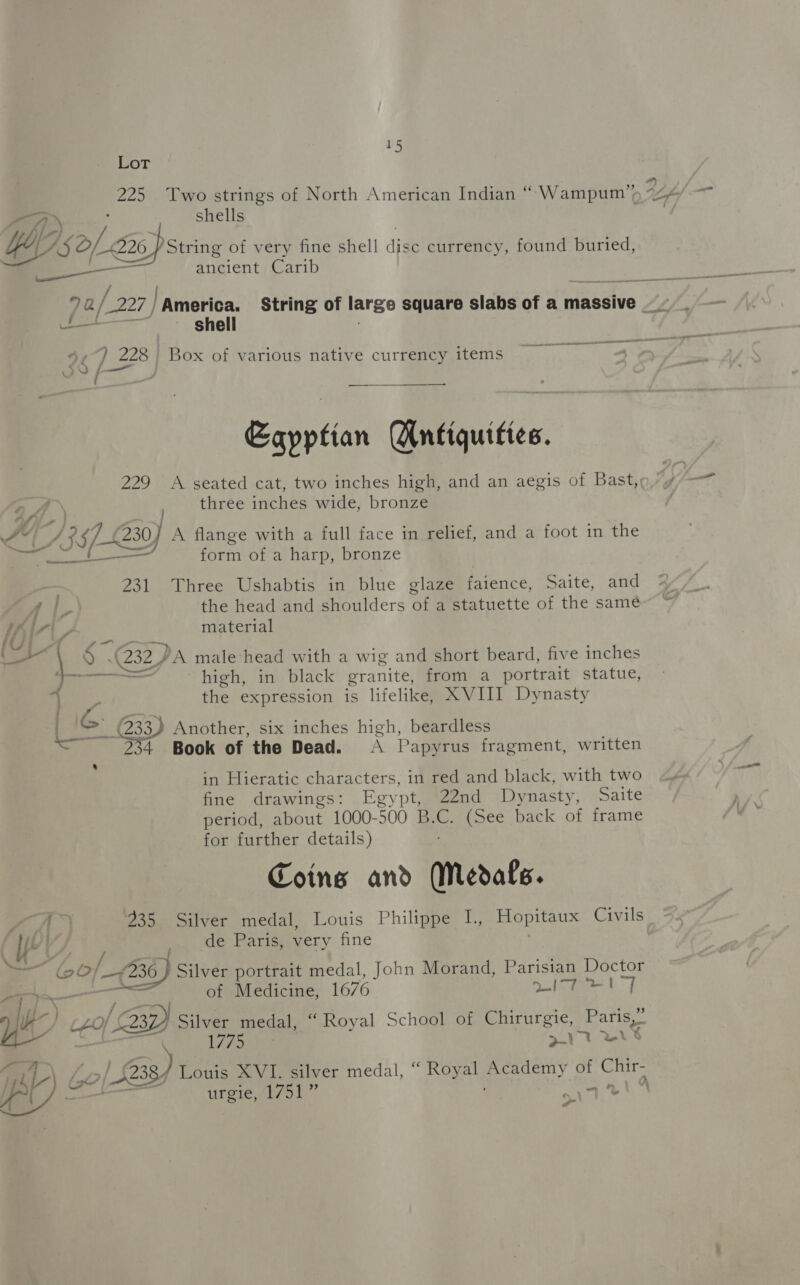 15
Lot
225 Two strings of North American Indian “ Wampum”,
shells
226 String of very fine shell disc currency, found buried,
ancient Carib
227 America. String of large square slabs of a massive
shell
228 Box of various native currency items
Egyptian Antiquities.
229 A seated cat, two inches high, and an aegis of Bast,
three inches wide, bronze
230 A flange with a full face in relief, and a foot in the
form of a harp, bronze
231 Three Ushabtis in blue glaze faience, Saite, and
the head and shoulders of a statuette of the same
material
232 A male head with a wig and short beard, five inches
high, in black granite, from a portrait statue,
the expression is lifelike, XVIII Dynasty
233 Another, six inches high, beardless
234 Book of the Dead. A Papyrus fragment, written
in Hieratic characters, in red and black, with two
fine drawings: Egypt, 22nd Dynasty, Saite
period, about 1000-500 B.C. (See back of frame
for further details)
Coins and Medals.
235 Silver medal, Louis Philippe I., Hopitaux Civils
de Paris, very fine
236 Silver portrait medal, John Morand, Parisian Doctor
of Medicine, 1676
237 Silver medal, “ Royal School of Chirurgie, Paris,”
1775
238 Louis XVI. silver medal, “ Royal Academy of Chir-
urgie, 1751 ”